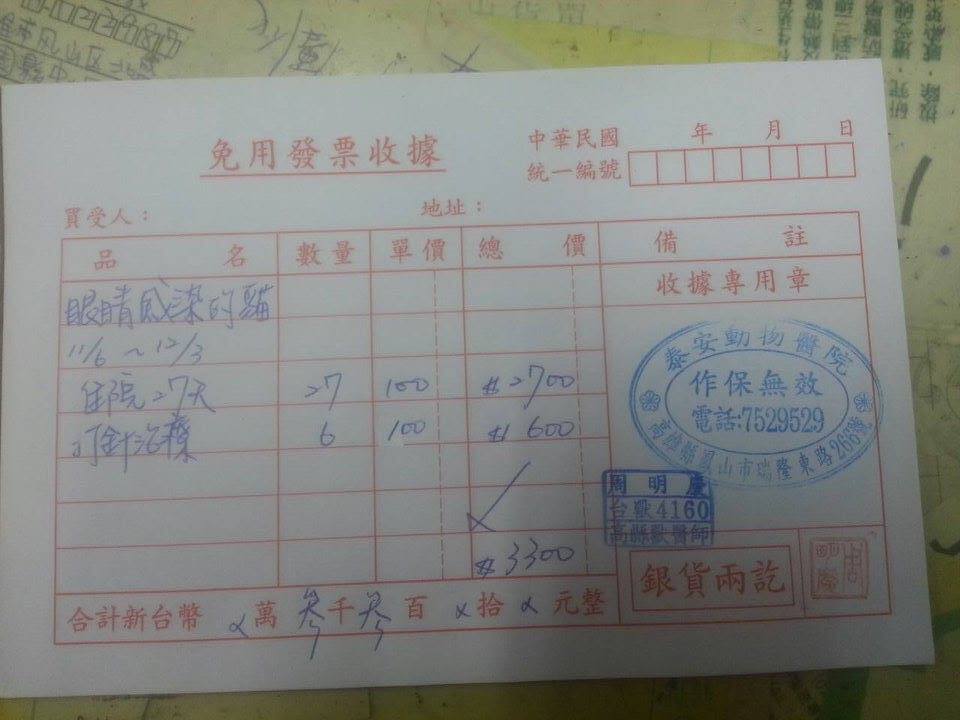 免用發票收據
中華民國 年 月 日
統一編號
買受人： 地址：
品名 數量 單價 總價 備註
收據專用章
眼睛感染的貓
11/6 ~ 12/3
住院27天 27 100 $2700
打針治療 6 100 $600
$3300
泰安動物醫院
作保無效
電話:7529529
高雄縣鳳山市瑞隆東路266號
周明慶
台獸4160
高縣獸醫師
銀貨兩訖
合計新台幣 萬 參千參百 拾 元整